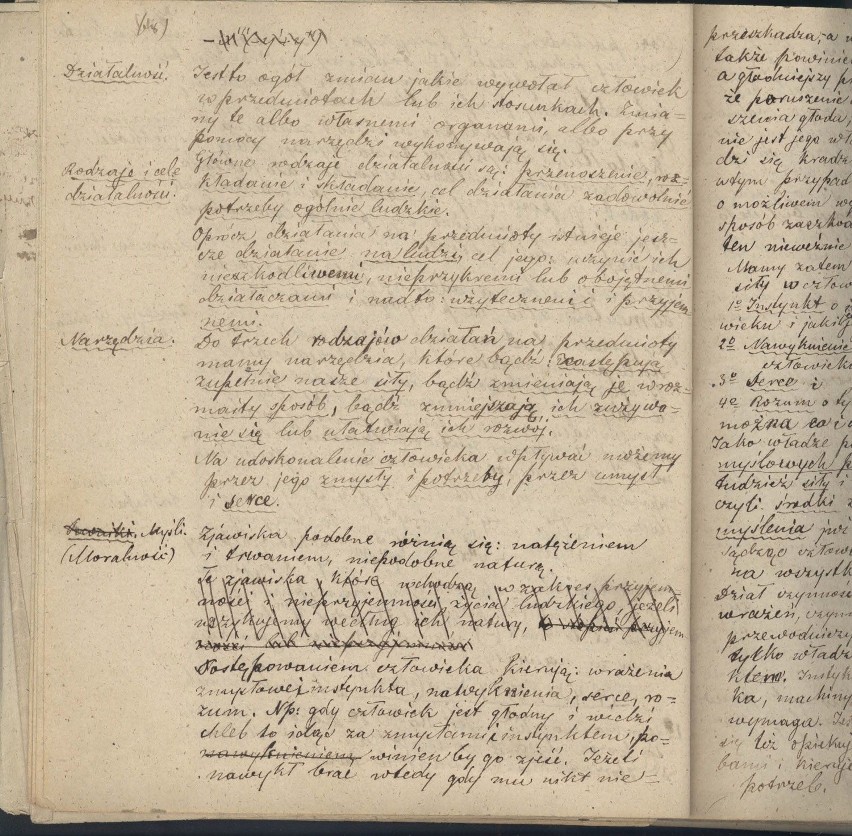 Działalność.
Jestto ogół zmian jakie wywołał człowiek
w przedmiotach lub ich stosunkach. Zmia-
ny te albo własnemi organami, albo przy
pomocy narzędzi wykonywają się.
Rodzaje i cele
działalności.
Główne rodzaje działalności są: przenoszenie, roz-
kładanie i składanie, cel działania zadowolnić
potrzeby ogólnie ludzkie.
Oprócz działania na przedmioty istnieje jesz-
cze działanie na ludzi, cel jego: uczynić ich
nieszkodliwemi, nieprzykremi lub obojętnemi
działaczami i nadto: użytecznemi i przyjem
nemi.
Narzędzia.
Do trzech rodzajów działań na przedmioty
mamy narzędzia, które bądź: zastępują
zupełnie nasze siły, bądź zmieniają je w roz-
maity sposób, bądź zmniejszają ich zużywa-
nie się lub ułatwiają ich rozwój.
Na udoskonalenie człowieka wpływać możemy
przez jego zmysły i potrzeby, przez umysł
i serce.
Myśli.
(Moralność)
Zjawiska podobne różnią się: natężeniem
i trwaniem, niepodobne naturą.
Te zjawiska, które wchodzą w zakres przyjem
ności i nieprzyjemności życia ludzkiego, jeżeli
uszykujemy według ich natury,
Postępowaniem człowieka kierują: wrażenia
zmysłowe, instynkta, nawyknienia, serce, ro-
zum. Np: gdy człowiek jest głodny i widzi
chleb to idąc za zmysłami i instynktem, po-
nawyknieniem winien by go zjeść. Jeżeli
nawykł brać wtedy gdy mu nikt nie-
przeszkadza, a
także powinien
a głodniejszy
że poruszenie
szenia głodu,
nie jest jego
dzi się
w tym
o możliwem
sposób
ten
Mamy zatem
siły w
1o Instynkt o
wieku i
2o Nawyknienie
człowieka
3o Serce i
4o Rozum o
można co i
Jako władze
myślowych
tudzież siły i
czyli środki
myślenia
sądząc
na wszystk
Dział czynności
wrażeń,
przewodniczy
tylko władz
ktem.
ka, machiny
wymaga.
się też
bami i kieruje
potrzeb.